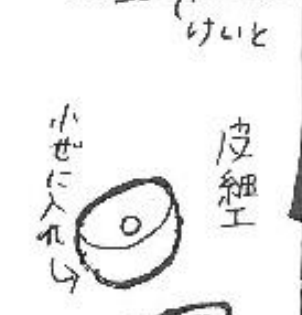 けいと
皮細工
小ぜに入れ